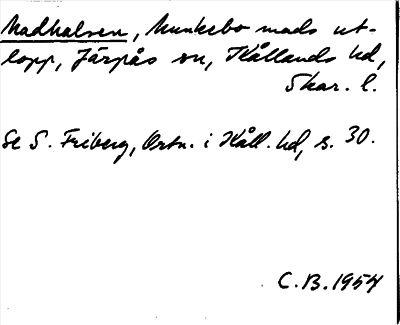 Madhalsen, Munkebo mads ut-
lopp, Järpås sn, Kållands hd,
Skar. l.
Se S. Friberg, Ortn. i Kåll. hd, s. 30.
C.B. 1954